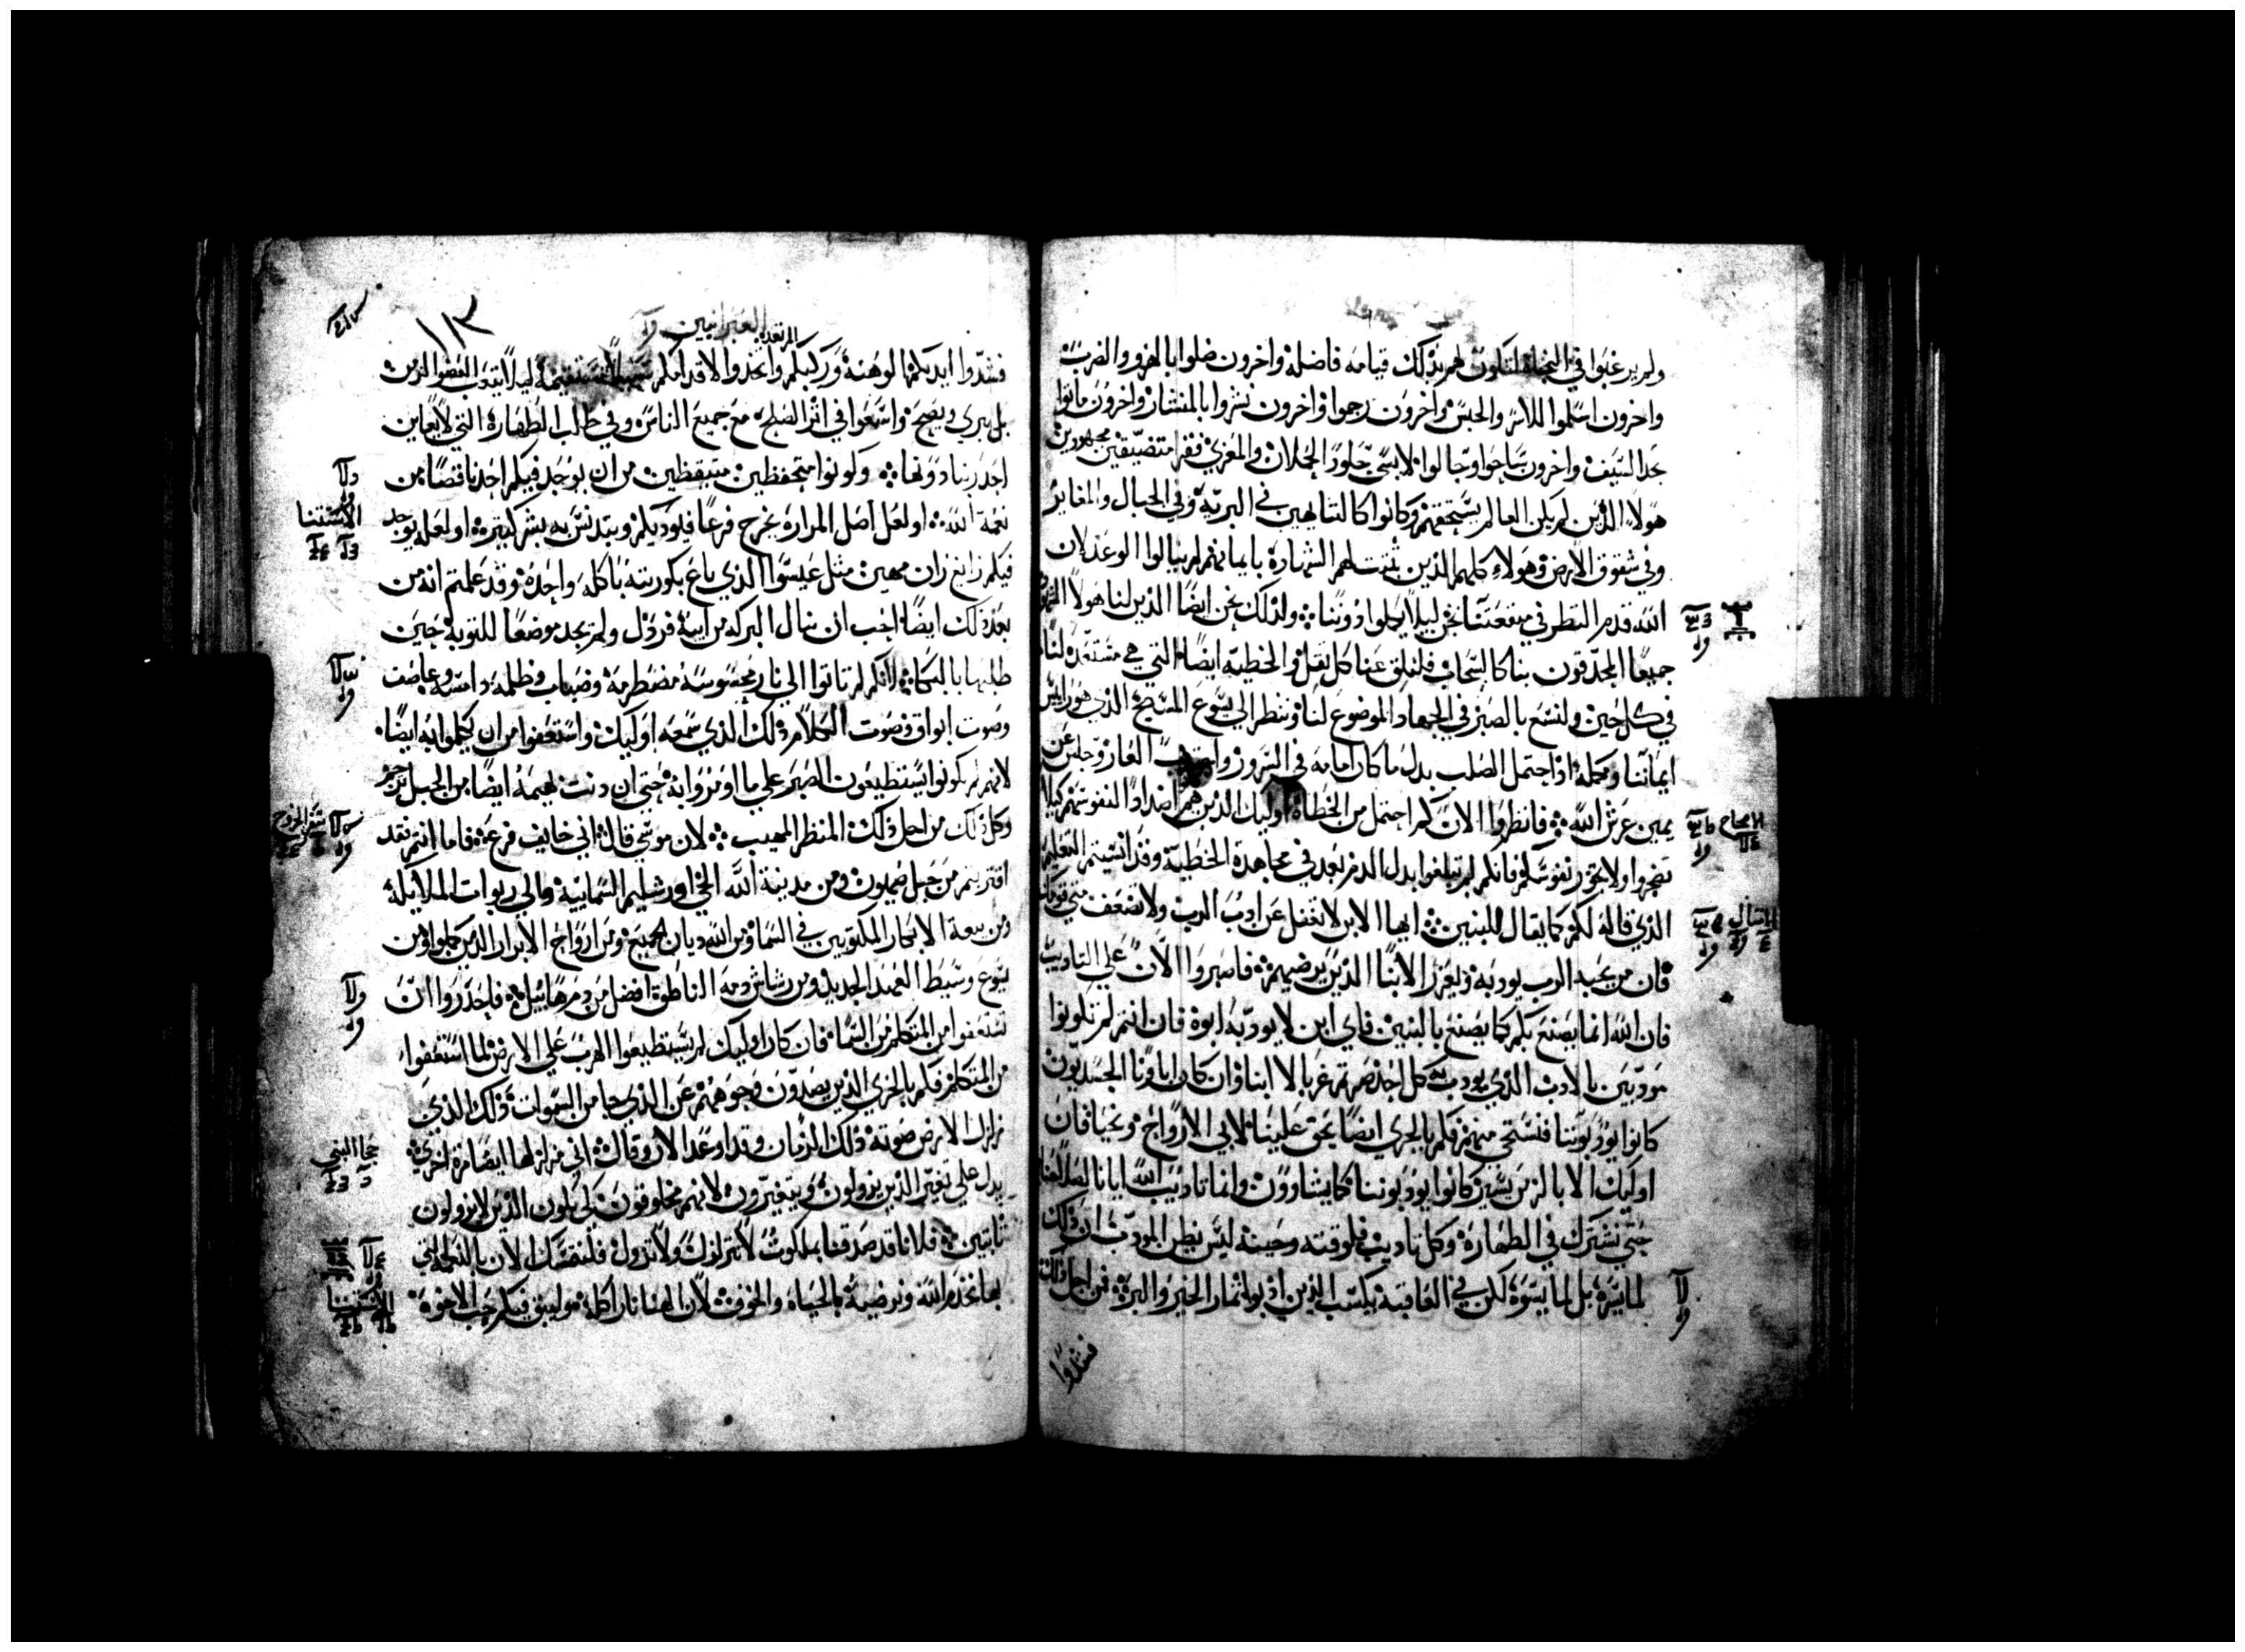 ولم يرغبوا في النجاة لتكون لهم بذلك قيامه فاضله واخرون ضلوا بالهزو والضرب
واخرون اسلموا للاسر والحبس واخرون رجموا واخرون نشروا بالمنشار واخرون ماتوا
بحد السيف واخرون ساحوا وجالوا لابسي جلود الحملان والمعزي فقرا متضيقين مجهودين
هولاء الذين لم يكن العالم يستحقهم وكانوا كالتايهين في البرية وفي الجبال والمغاير
وفي شقوق الارض وهولاء كلهم الذين ثبتت لهم الشهادة بايمانهم لم ينالوا الوعد لان
الله قدم النظر في منفعتنا نحن ليلا يكملوا دوننا ولذلك نحن ايضا الذين لنا هولا الشهود
جميعا المحدقون بنا كالسحاب فلنلق عنا كل ثقل والخطية ايضا التي هي مستعده لنا
في كل حين ولنسع بالصبر في الجهاد الموضوع لنا وننظر الي يسوع المسيح الذي هو راس
ايماننا ومكمله اذ احتمل الصلب بدل ما كان امامه في السرور العار وجلس عن
يمين عرش الله فانظروا الان كم احتمل من الخطاة اوليك الذين هم اضداد النفوسهم كيلا
تضجروا ولا تخور نفوسكم فانكم لم تبلغوا بدل الدم بعد في مجاهدة الخطية وقد انسيتم التعليم
الذي قاله لكم كما يقال للبنين ايها الابن لا تغفل عن ادب الرب ولا تضعف متي قومك
فان من يحبه الرب يودبه ويعزر الابنا الذين يرضيهم فاصبروا الان علي التاديب
فان الله انما يصنع بكم كما يصنع بالبنين فاي ابن لا يودبه ابوه فان انتم لم تكونوا
مودبين بالادب الذي يودب به كل احد صرتم غربا لا ابنا وان كان اباونا الجسديون
كانوا يودبوننا فنستحي منهم فكم بالحري ايضا يحق علينا لابي الارواح ونحيا فان
اوليك الابا لزمن يسير كانوا يودبوننا كما يشاوون واما تاديب الله ايانا لصلاحنا
حتي نشترك في الطهارة وكل تاديب فلوقته وحينه ليس يظن المودب ان ذلك
لما يسره بل لما يسوه لكن في العاقبة يكسب الذين ادبوا ثمار الخير والبر فمن اجل ذلك
فشدوا
العبرانيين
١١٣
فشدوا ايديكم الوهنة وركبكم المرتعده واتخذوا لاقدامكم سبلا مستقيمة ليلا يتعب العضو الزمن
بل يبري ويصح واسعوا في اثر الصلح مع جميع الناس وفي طلب الطهارة التي لا يعاين
احد ربنا دونها وكونوا متحفظين متيقظين من ان يوجد فيكم احد ناقصا من
نعمة الله او لعل اصل المرارة يخرج فرعا فيوديكم ويتدنس به بشر كثير او لعله يوجد
فيكم زانغ زان مهين مثل عيسوا الذي باع بكوريته باكله واحدة وقد علمتم انه من
بعد ذلك ايضا احب ان ينال البركه من ابيه فرذل ولم يجد موضعا للتوبة حين
طلبها بالبكا لانكم لم تاتوا الي نار محسوسة مضطرمة وضباب وظلمه دامسة وعاصف
وصوت ابواق وصوت الكلام ذلك الذي سمعه اوليك واستعفوا من ان يكلموا به ايضا
لانهم لم يكونوا يستطيعون الصبر علي ما اومروا به حتي ان دنت بهيمة ايضا من الجبل ترجم
وكل ذلك من اجل ذلك المنظر المهيب لان موسي قال اني خايف فزع فاما انتم فقد
اقتربتم من جبل صهيون ومن مدينة الله الحي اورشليم السمايية والي ربوات الملايكة
ومن بيعة الابكار المكتوبين في السما ومن الله ديان الجميع ومن ارواح الابرار الذين كملوا ومن
يسوع وسيط العهد الجديد ومن رشاش دمه الناطق افضل من دم هابيل فاحذروا ان
تستعفوا من المتكلم من السما فان كان اوليك لم يستطيعوا الهرب علي الارض لما استعفوا
من المتكلم فكم بالحري الذين يصدون وجوههم عن الذي جا من السموات ذاك الذي
زلزل الارض صوته ذلك الزمان وقد اوعد الان وقال اني مزلزلها ايضا مرة اخري
يدل علي تغير الذين يزولون ويتغيرون لانهم مخلوقون لكي يكون الذين لا يزولون
ثابتين فلانا قد صدقنا بملكوت لا تتزلزل ولا تزول فلنتمسك الان بالنعمة التي
بها نخدم الله ونرضيه بالحياء والخوف لان الهنا نار اكلة وليبق فيكم حب الاخوة
الامثال
الاستثنا
سفر الخروج
حجا النبي
الاستثنا